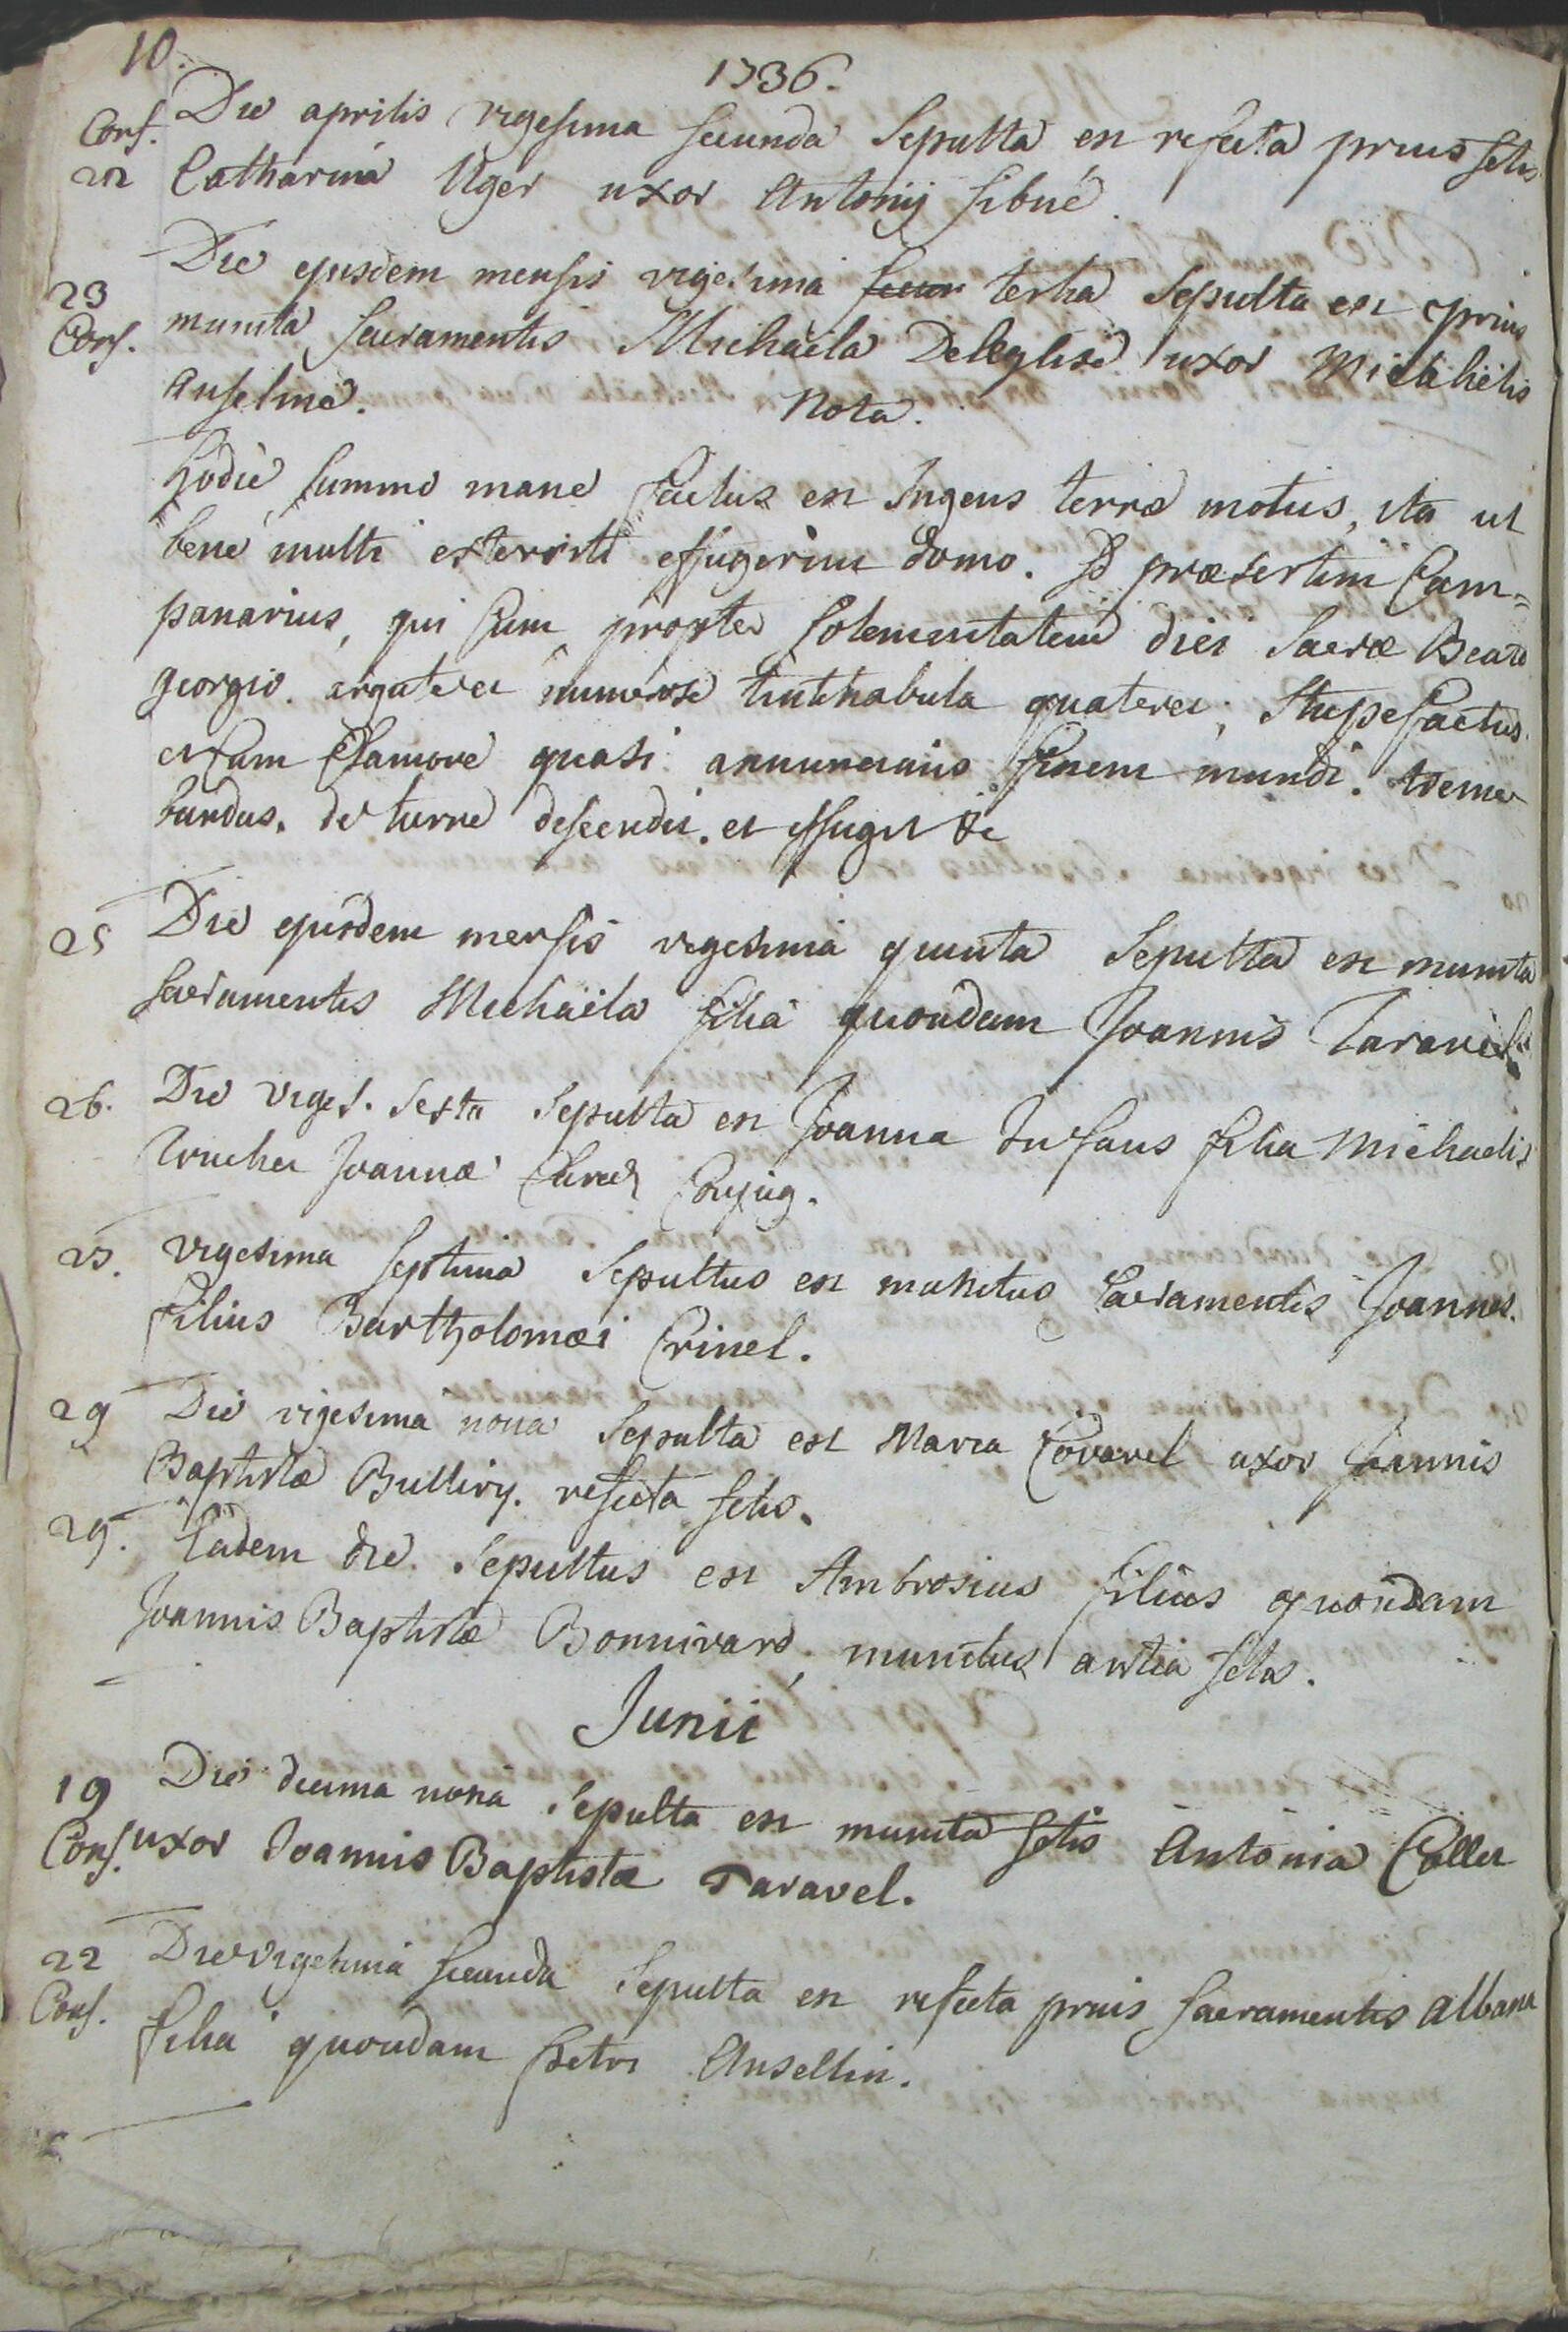 10.
1736.
Conf. Die aprilis vigesima secunda Sepulta est refecta prius sctis
22 Catharina Uger uxor Antonij sibué.
23 Die ejusdem mensis vigesima tertia Sepulta est prius
Conf. munita sacramentis Michaela Deleglise uxor Michaëlis
Anselme.
Nota.
hodie summo mane factus est Ingens terræ motus, ita ut
bene multi exterriti effugerint domo. Sed præsertim Cam=
panarius, qui cum propter solemnitatem diei sacræ Beato
georgio. numerose tintinabula quateret, stupefactus
clamore quasi annuncians finem mundi. treme
bundus. de turre descendit. et effugit &c
25 Die ejusdem mensis vigesima quinta Sepulta est munita
sacramentis Michaëla filia quondam Joannis Taravel.
26. Die viges. sexta Sepulta est Joanna Infans filia Michaelis
Joannæ Conjug.
27. vigesima septima Sepultus est munitus sacramentis Joannes.
filius Bartholomæi Crinel.
29 Die vigesima nona Sepulta est Maria Covarel uxor Joannis
Baptistæ Bulliry. refecta sctis.
29. Eadem die Sepultus est Ambrosius filius quondam
Joannis Baptistæ Bonnivard, munitus antea sctis.
Junii
19 Die decima nona Sepulta est munita sctis Antonia Collet
Conf. uxor Joannis Baptistæ Taravel.
22 Die vigesima secunda Sepulta est refecta prius sacramentis albana
Conf. filia quondam petri Ansellin.